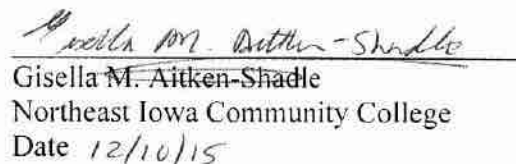 Gisella M. Aitken-Shadle
Gisella M. Aitken-Shadle
Northeast Iowa Community College
Date 12/10/15